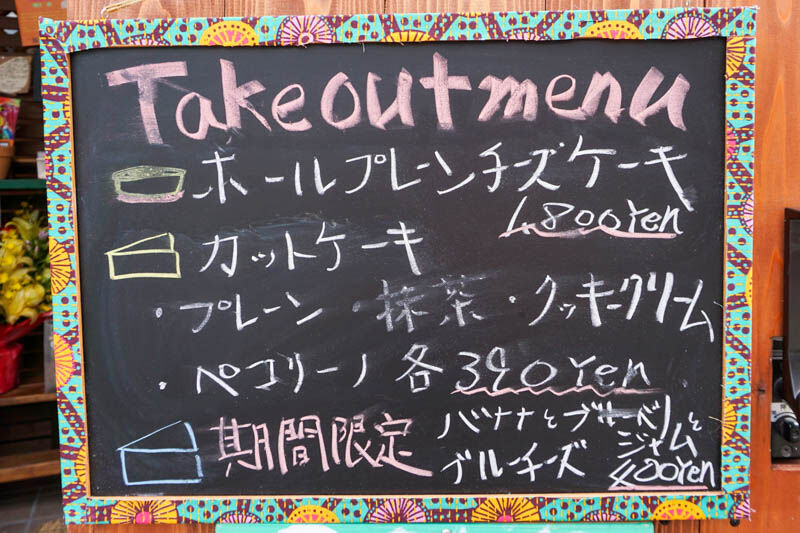 Takeout menu
ホールプレーンチーズケーキ
1,800Yen
カットケーキ
・プレーン・抹茶・クッキークリーム
・ペコリーノ 各390Yen
期間限定 バナナとブルーベリーと
ブルーチーズ ジャム
400Yen